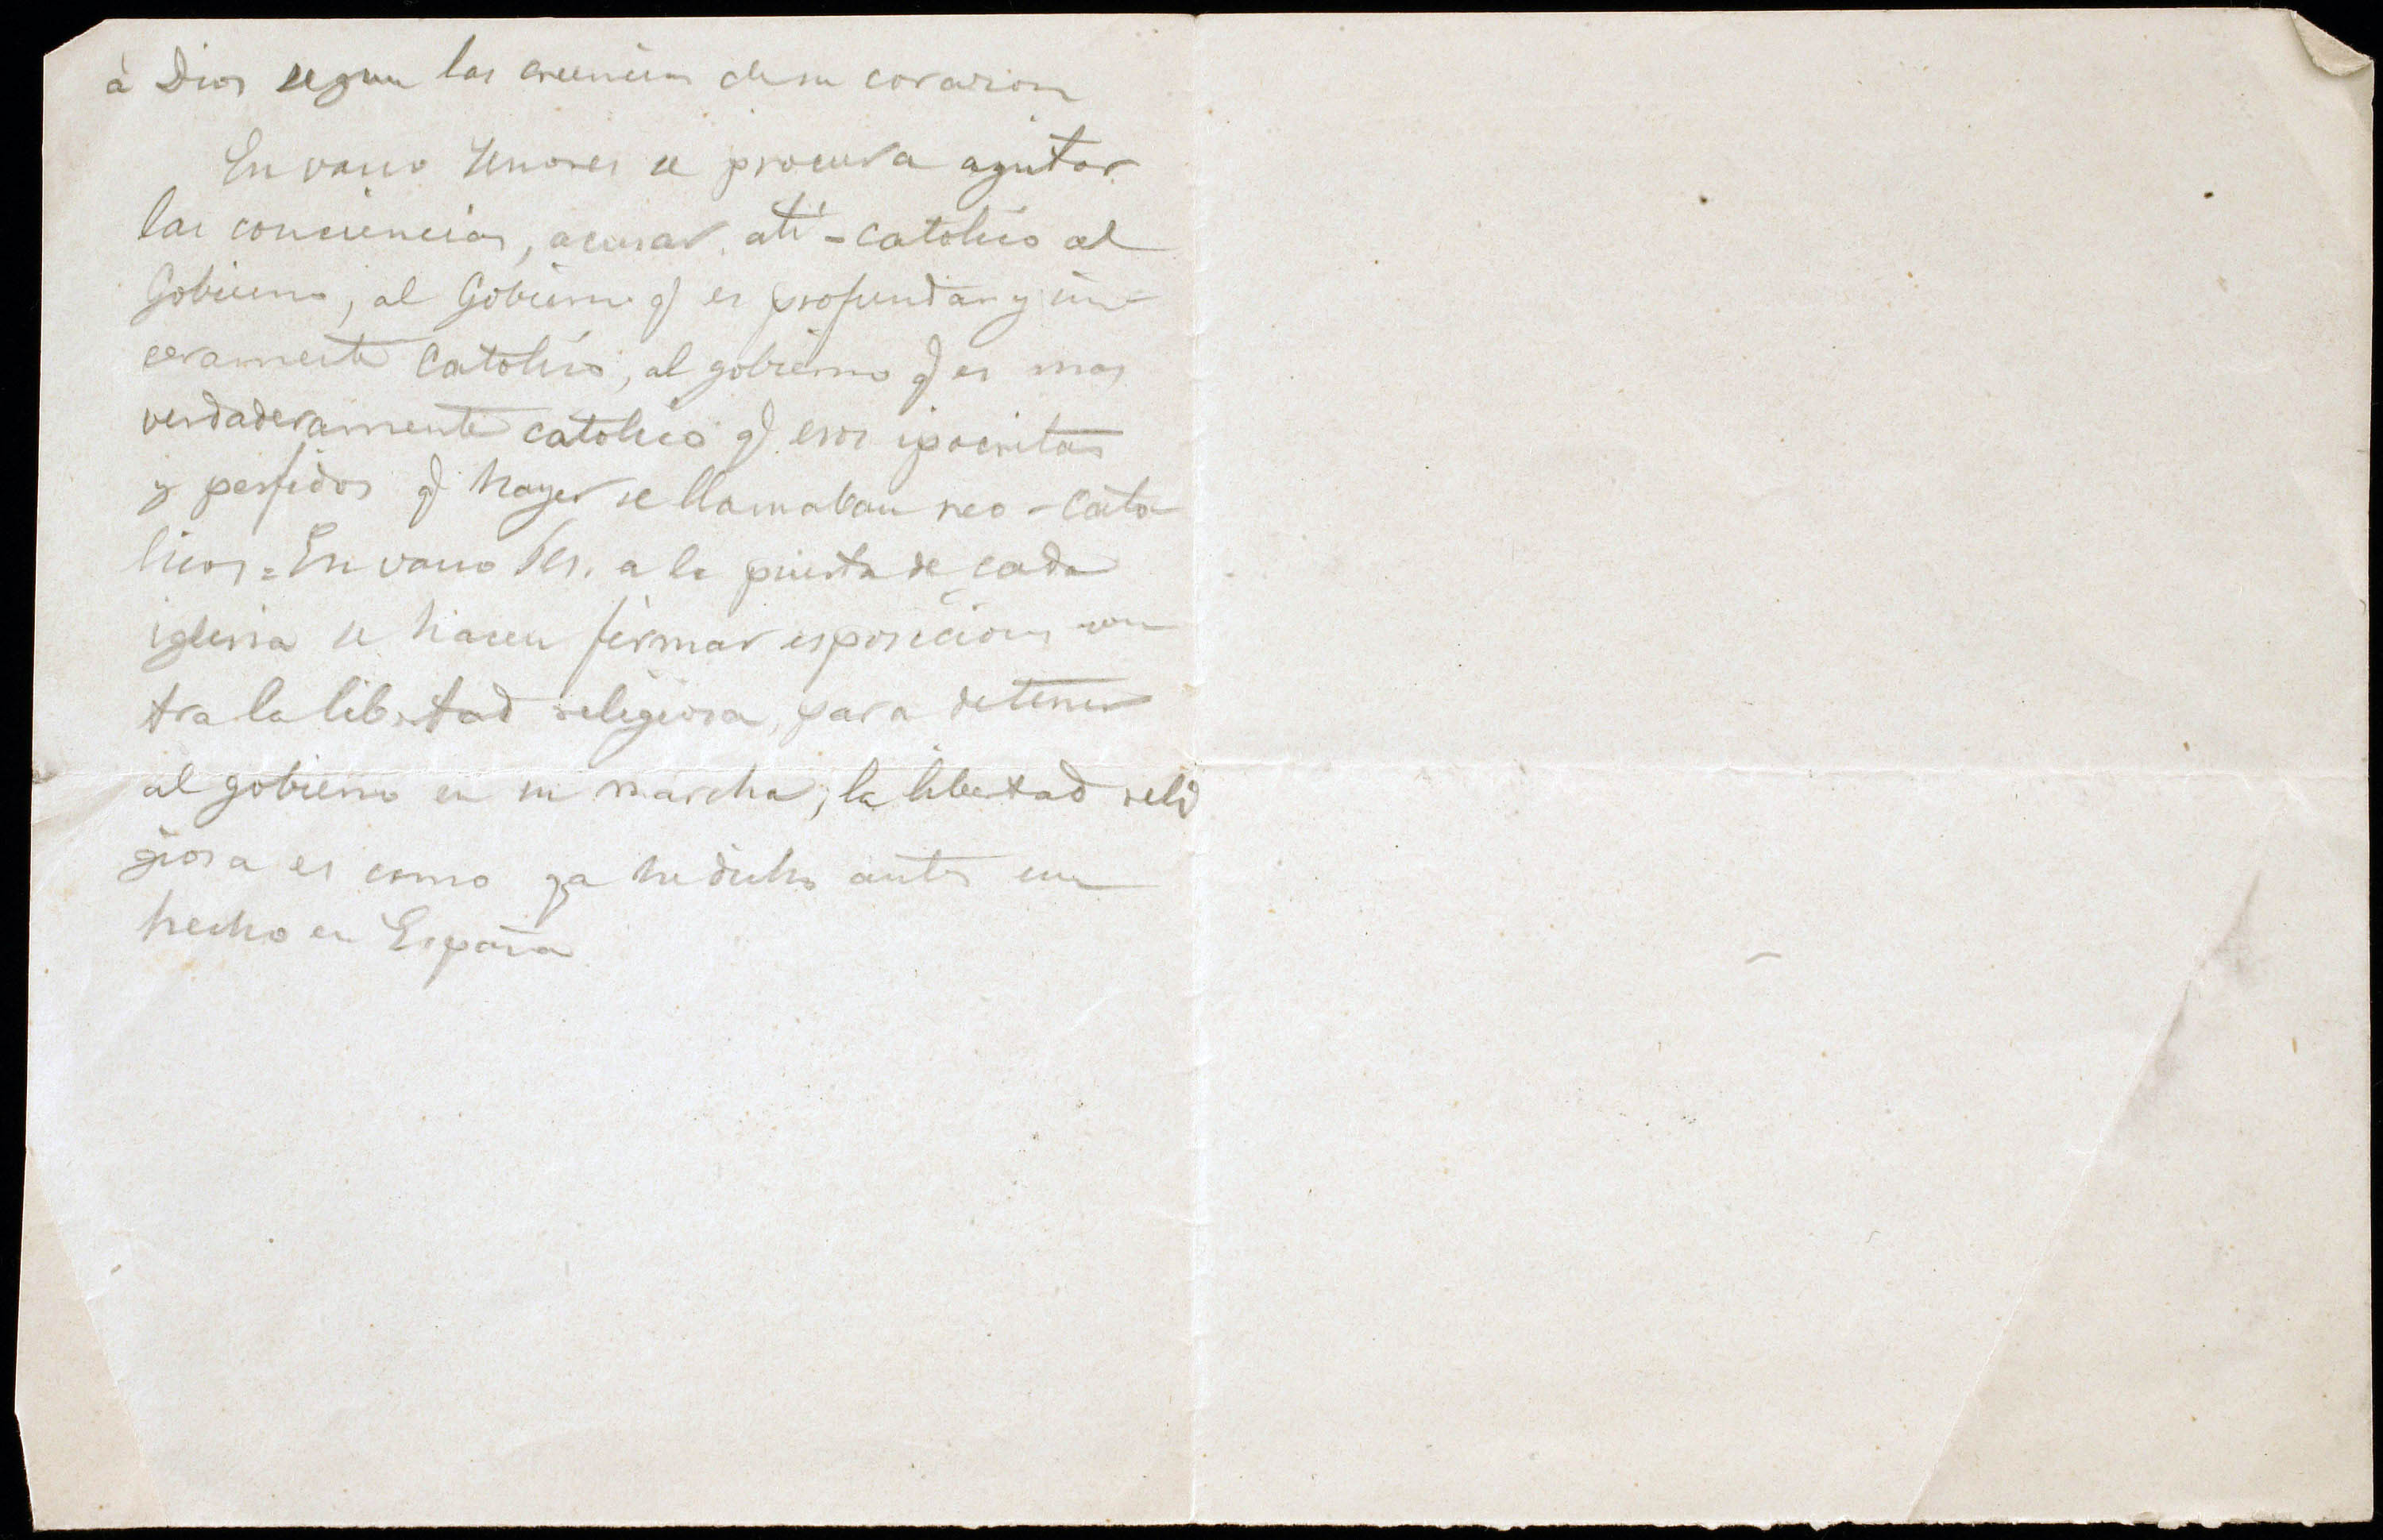 à Dios segun las creencias de su corazon
En vano Señores se procura agitar
las conciencias, acusar ati-catolico al
Gobierno, al Gobierno q) es profunda y sin-
ceramente Catolico, al gobierno q) es mas
verdaderamente catolico q) esos ipocritas
y perfidos q) hayer se llamaban neo-cato
licos = En vano Srs. a la puerta de cada
iglesia se hacen firmar esposiciones con
tra la libertad religiosa, para detener
al gobierno en su marcha, la libertad reli
giosa es como ya he dicho antes un
hecho en España